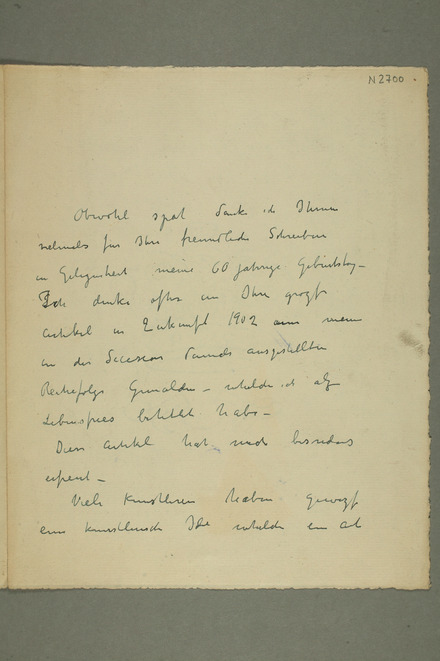 N2700
Obwohl spät danke ich Ihnen
vielmals für Ihr freundliche Schreiben
in Gelegenheit meine 60 jahrige Geburtstag –
Ich denke ofte an Ihre große
artikel in Zukunft 1902 meine
in der Secession damals ausgestellten
Reihefolge Gemälden – welche ich als
Lebensfries betitelt habe –
Diese artikel hat mich besonders
erfreut –
Viele Künstleren haben gewagt
eine künstlerische Ide welche ein